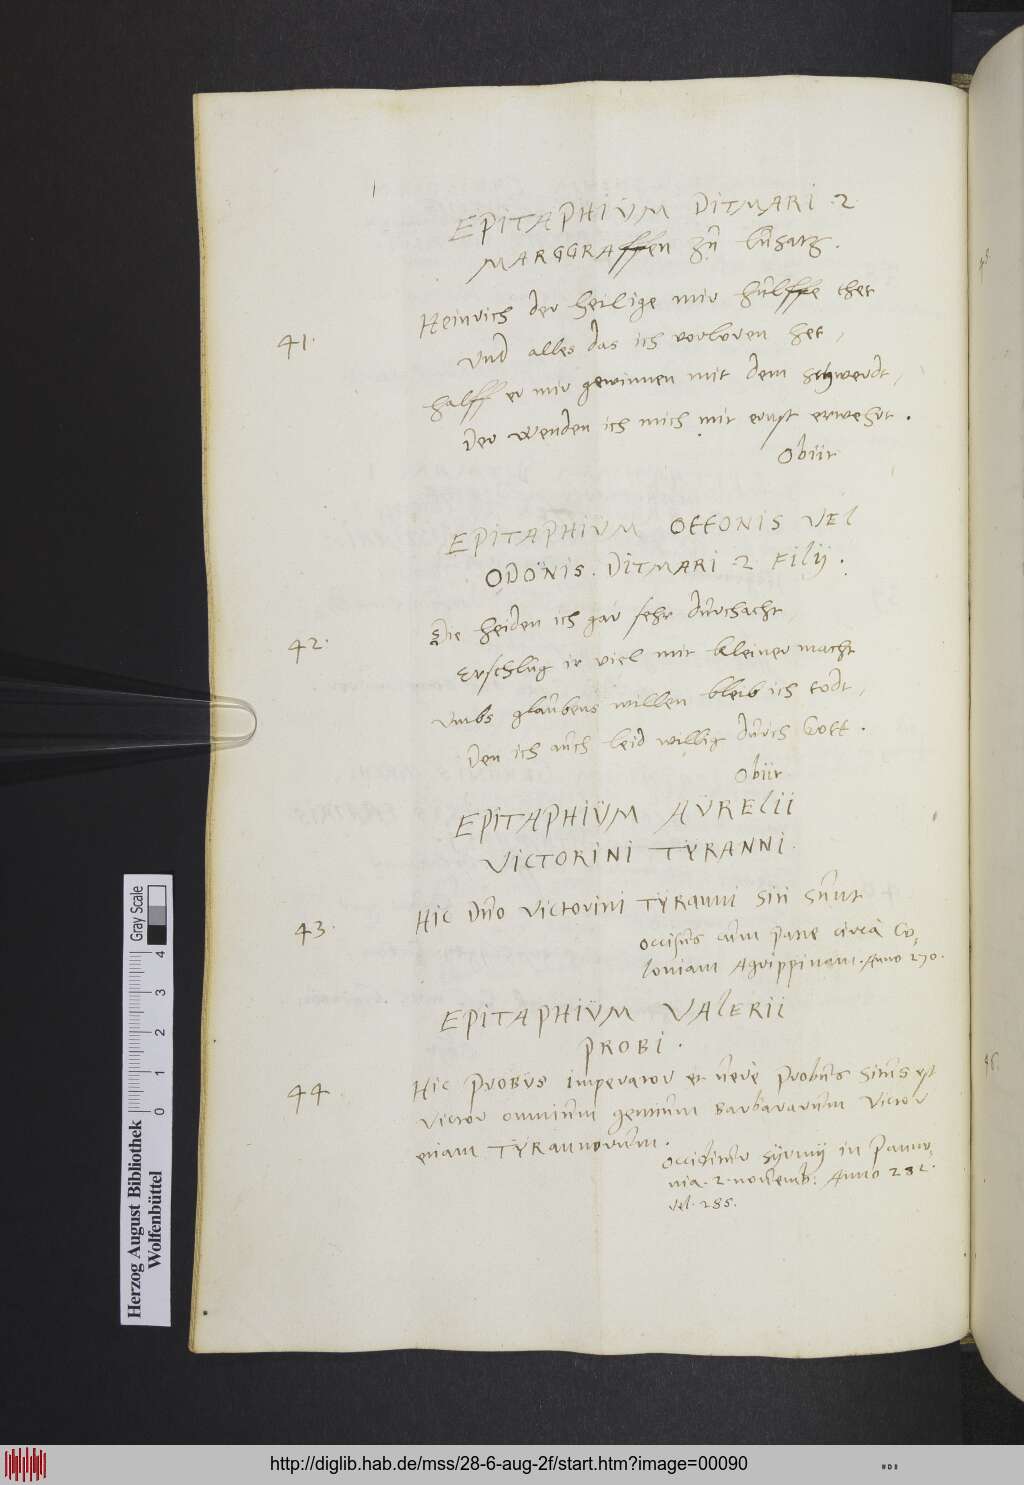 EPITAPHIUM DITMARI .2.
MARGGRAffen zu Lusatz.
41.
Heinrich der heilige mir hulffe thet
Und alles das ich vorloren het,
halff er mir gewinnen mit dem schwerdt,
Der Wenden ich mich mit ernst erwehrt.
Obiit
EPITAPHIUM OTTONIS VEL
ODONIS. DITMARI 2 FILIJ.
42.
Die heiden ich gar sehr durchacht,
Erschlug ir viel mit kleiner macht
Umbs glaubens willen bleib ich todt,
Den ich auch leid willig durch Gott.
Obiit
EPITAPHIUM AURELII
VICTORINI TYRANNI.
43.
Hic Duo Victorini Tyranni siti sunt
occisus cum patre circa Co-
loniam Agrippinam. Anno 270.
EPITAPHIUM VALERII
PROBI.
44.
Hic PROBUS imperator et vere Probus situs est
Victor omnium gentium Barbararum Victor
etiam TYRannorum.
occiditur Syrmij in Panno-
nia. 2. novemb. Anno 282.
vel. 285.
Herzog August Bibliothek
Wolfenbüttel
Gray Scale
0 1 2 3 4
http://diglib.hab.de/mss/28-6-aug-2f/start.htm?image=00090